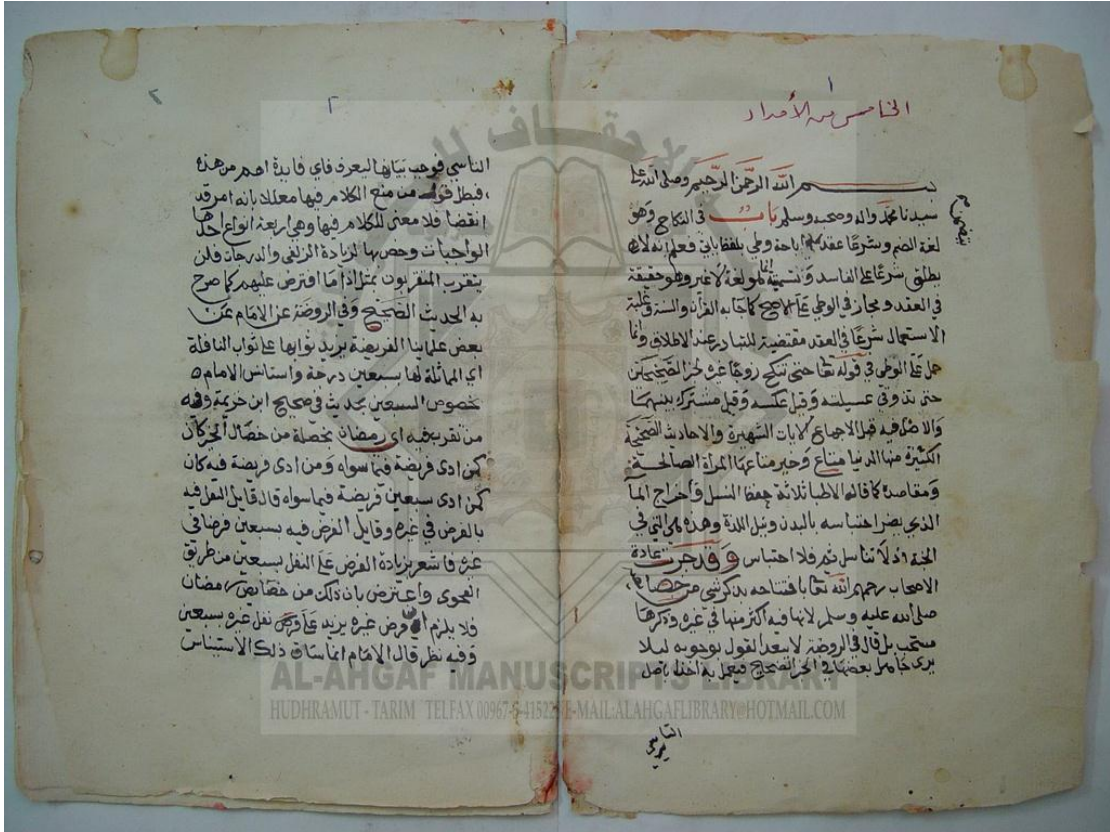 ١
الخامس من الأمداد
بسم الله الرحمن الرحيم وصلى الله على
سيدنا محمد واله وصحبه وسلم باب في النكاح وهو
لغة الضم وشرعا عقد يتضمن اباحة وطى بلفظ ياتي فعلم انه لا
يطلق شرعا على الفاسد وهو حقيقة
في العقد ومجاز في الوطي على الاصح كما جا به القران والسنة فغلبة
الاستعمال شرعا في العقد مقتضية للتبادر عند الاطلاق وانما
حمل على الوطى في قوله تعا حتى تنكح زوجا غيره لخبر الصحيحين
حتى تذوقي عسيلته وقيل عكسه وقيل مشترك بينهما
والاصل فيه قبل الاجماع الايات الشهيرة والاحاديث الصحيحة
الكثيرة منها الدنيا متاع وخير متاعها المراة الصالحة
ومقاصده كما قاله الاطبا ثلاثة حفظ النسل واخراج الما
الذي يضر احتباسه بالبدن ونيل اللذة وهذه هي التي في
الجنة اذ لا تناسل ثم ولا احتباس وقد جرت عادة
الاصحاب رحمهم الله تعا بافتتاحه بذكر شي من خصايصه
صلى الله عليه وسلم لانها فيه اكثر منها في غيره وذكرها
مستحب بل قال في الروضة لا يبعد القول بوجوبه ليلا
يرى جاهل بعضها في الخبر الصحيح فيعمل به اخذا باصل
التاسي
٢
التاسي فوجب بيانها ليعرف فاي فايدة اهم من هذه
فبطل قول من منع الكلام فيها معللا بانه امر قد
انقضا فلا معنى للكلام فيها وهي اربعة انواع احدها
الواجبات وخص بها لزيادة الزلفى والدرجات فلن
يتقرب المتقربون بمثل اداء ما افترض عليهم كما صرح
به الحديث الصحيح وفي الروضة عن الامام عن
بعض علماينا الفريضة يزيد ثوابها على ثواب النافلة
اي المماثلة لها بسبعين درجة واستانس الامام
خصوص السبعين بحديث في صحيح ابن خزيمة وهو
من تقرب فيه اي رمضان بخصلة من خصال الخير كان
كمن ادى فريضة فيما سواه ومن ادى فريضة فيه كان
كمن ادى سبعين فريضة فيما سواه قال قابل النفل فيه
بالفرض في غيره وقابل الفرض فيه بسبعين فرضا في
غيره فاشعر بزيادة الفرض على النفل بسبعين من طريق
الفحوى واعترض بان ذلك من خصايص رمضان
فلا يلزم ان فرض غيره يزيد على نفل غيره سبعين
وفيه نظر قال الامام انما ساق ذلك الاستيناس
AL-AHGAF MANUSCRIPTS LIBRARY
HUDHRAMUT - TARIM TELFAX 00967-5-415225 E-MAIL:ALAHGAFLIBRARY@HOTMAIL.COM